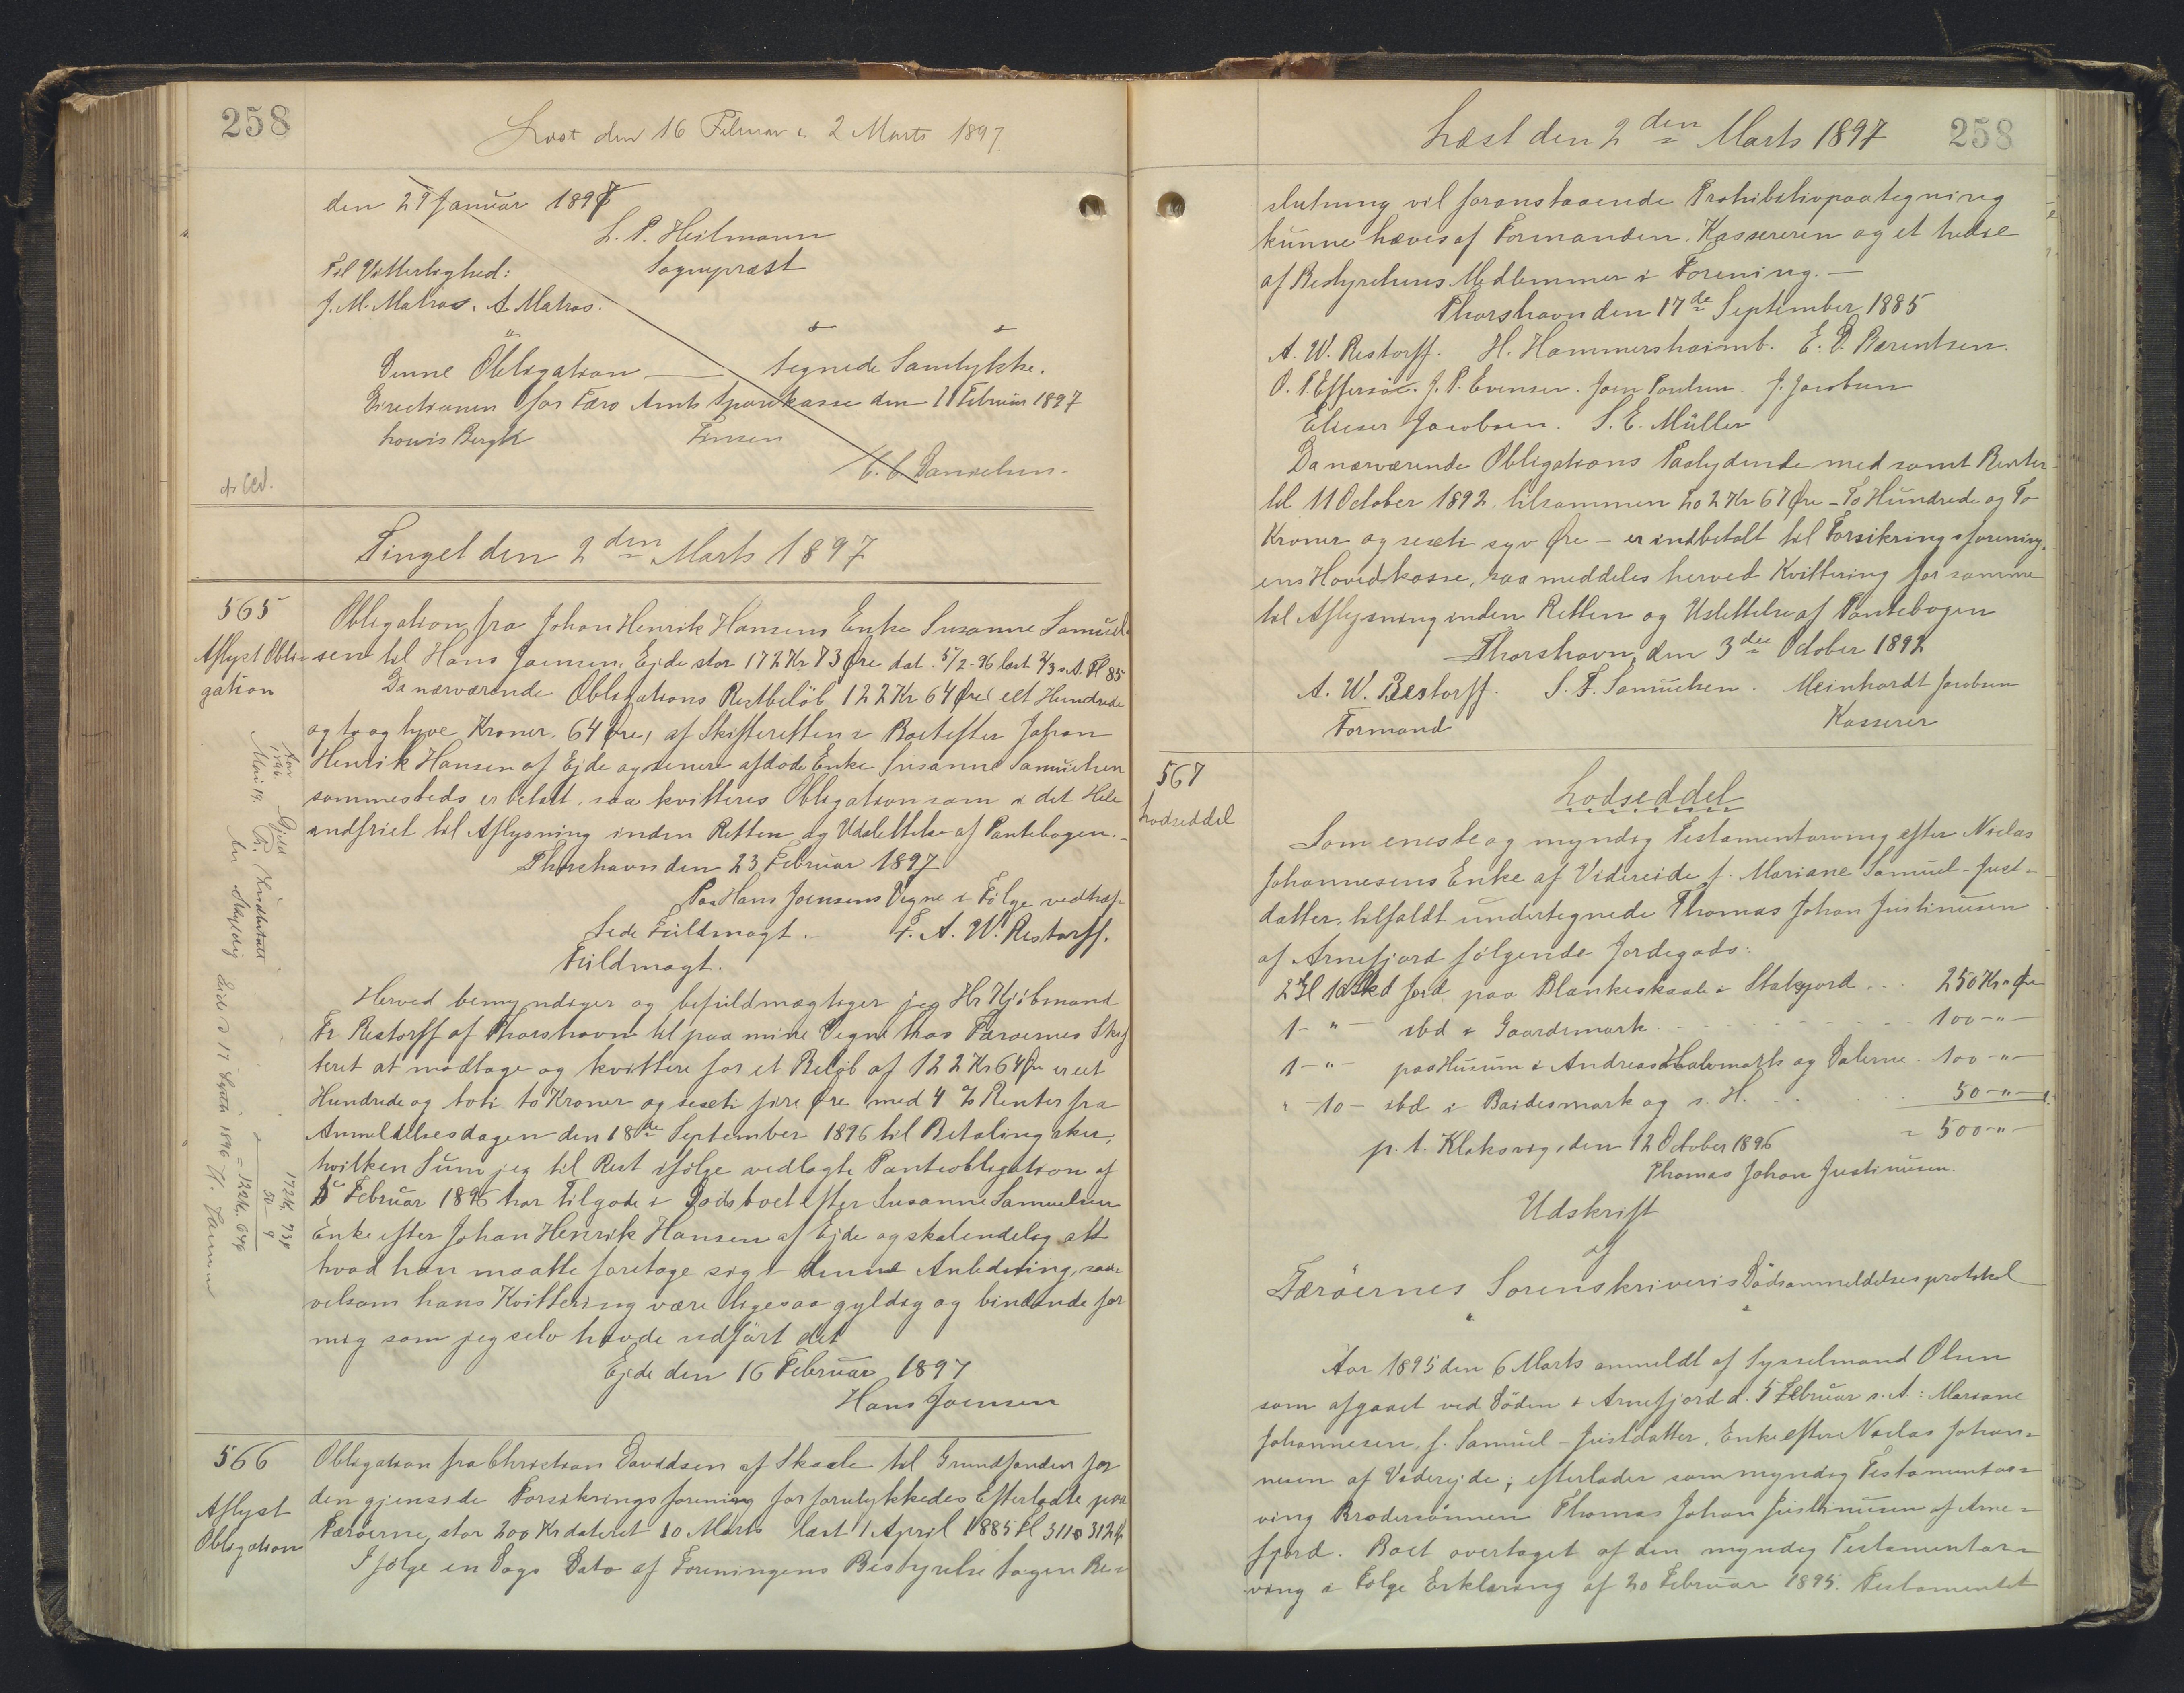 258
Læst den 16 Februar & 2 Marts 1897.
den 29 Januar 1897
L. P. Heilmann
Til Vitterlighed: Sognepræst
J. M. Matras. A Matras.
Denne Obligation — tegnede Samtykke.
Directionen for Færø Amts Sparekasse den 11 Februar 1897
Louis Bergh Finsen
C. C. Danielsen.
Tinget den 2den Marts 1897
565
Aflyst Obli-
gation
Obligation fra Johan Henrik Hansens Enke Susanne Samuel-
sen til Hans Joensen, Ejde stor 172 Kr 73 Øre dat. 5/2-96 læst 3/3 s. A. Fl 85
Da nærværende Obligations Restbeløb 122 Kr 64 Øre et Hundrede
og to og tyve Kroner, 64 Øre, af Skifteretten i Boet efter Johan
Henrik Hansen af Ejde og senere afdøde Enke Susanne Samuelsen
sammesteds er betalt, saa kvitteres Obligationen som i det Hele
indfriet til Aflysning inden Retten og Udslettelse af Pantebogen.
Thorshavn den 23 Februar 1897
Paa Hans Joensens Vegne i Følge vedhæf-
tede Fuldmagt. F. A. W. Restorff.
Fuldmagt.
Herved bemyndiger og befuldmægtiger jeg Hr Kjøbmand
Fr Restorff af Thorshavn til paa mine Vegne hos Færøernes Skif
teret at modtage og kvittere for et Beløb af 122 Kr 64 Øre er et
Hundrede og toti to Kroner og sexti fire Øre med 4 % Renter fra
Anmeldelsesdagen den 18de September 1896 til Betaling sker,
hvilken Sum jeg til Rest ifølge vedlagte Panteobligation af
5 Februar 1896 har Tilgode i Dødsboet efter Susanne Samuelsen
Enke efter Johan Henrik Hansen af Ejde og skal endelig alt
hvad han maatte foretage sig i denne Anledning, saa-
velsom hans Kvittering være ligesaa gyldig og bindende for
mig som jeg selv havde udført det
Ejde den 16 Februar 1897
Hans Joensen
566
Aflyst
Obligation
Obligation fra Christian Davidsen af Skaale til Grundfonden for
den gjenside Forsikringsforening for forulykkedes Efterladte paa
Færøerne, stor 200 Kr dateret 10 Marts læst 1 April 1885 Fl 311 & 312
I følge en Dags Dato af Foreningens Bestyrelse tagen Be-
Læst den 2den Marts 1897
258
slutning vil foranstaaende Prohibitivpaategning
kunne hæves af Formanden, Kassereren og et tredie
af Bestyrelsens Medlemmer i Forening.—
Thorshavn den 17de September 1885
A. W. Restorff. H. Hammershaimb. E. D. Bærentsen.
O. P. Effersøe. J. P. Evensen. Joen Poulsen. J. Jacobsen
Elieser Jacobsen. S. E. Müller
Da nærværende Obligations Paalydende med samt Renter
til 11 October 1892, tilsammen 202 Kr 67 Øre – To Hundrede og To
Kroner og sexti syv Øre – er indbetalt til Forsikringsforening-
ens Hovedkasse, saa meddeles herved Kvittering for samme
til Aflysning inden Retten og Udslettelse af Pantebogen
Thorshavn, den 3die October 1892
A. W. Restorff. S. F. Samuelsen. Meinhardt Jacobsen
Formand Kasserer
567
Lodseddel
Lodseddel
Som eneste og myndig Testamentarving efter Niclas
Johannesens Enke af Videreide f. Mariane Samuel-Just-
datter, tilfaldt undertegnede Thomas Johan Justinusen
af Arnefjord følgende Jordegods:
2 Gl 10 Skd Jord paa Blankeskaale i ... 250 Kr " Øre
1 – " – ibd i Gaardsmark 100 – " –
1 – " – paa Husum i Andreas ... og Dalerne 100 – " –
" – 10 – ibd i Baidesmark og s. H. 50 – " –
= 500 – " –
p. t. Klaksvig, den 12 October 1896
Thomas Johan Justinusen.
Udskrift
af
Færøernes Sorenskriveris Dødsanmeldelsesprotokol
Aar 1895 den 6 Marts anmeldt af Sysselmand Olsen
som afgaaet ved Døden i Arnefjord d. 5 Februar s. A.: Mariane
Johannesen, f. Samuel-Justdatter, Enke efter Niclas Johan-
nesen af Viderejde; efterlader som myndig Testamentar-
ving Brodersønnen Thomas Johan Justinusen af Arne-
fjord. Boet overtaget af den myndig Testamentar-
ving i Følge Erklæring af 20 Februar 1895. Testamentet